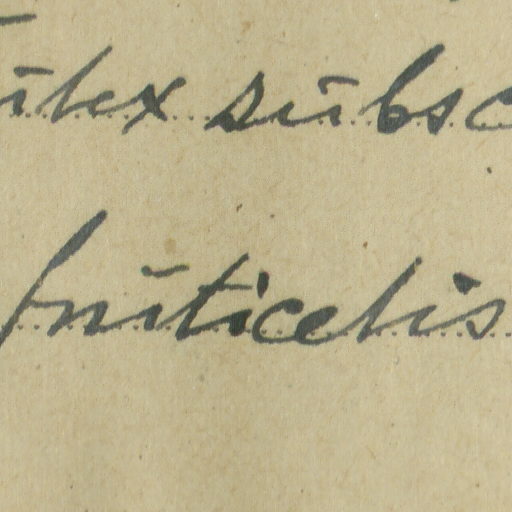 ulex subsc
fruticetis